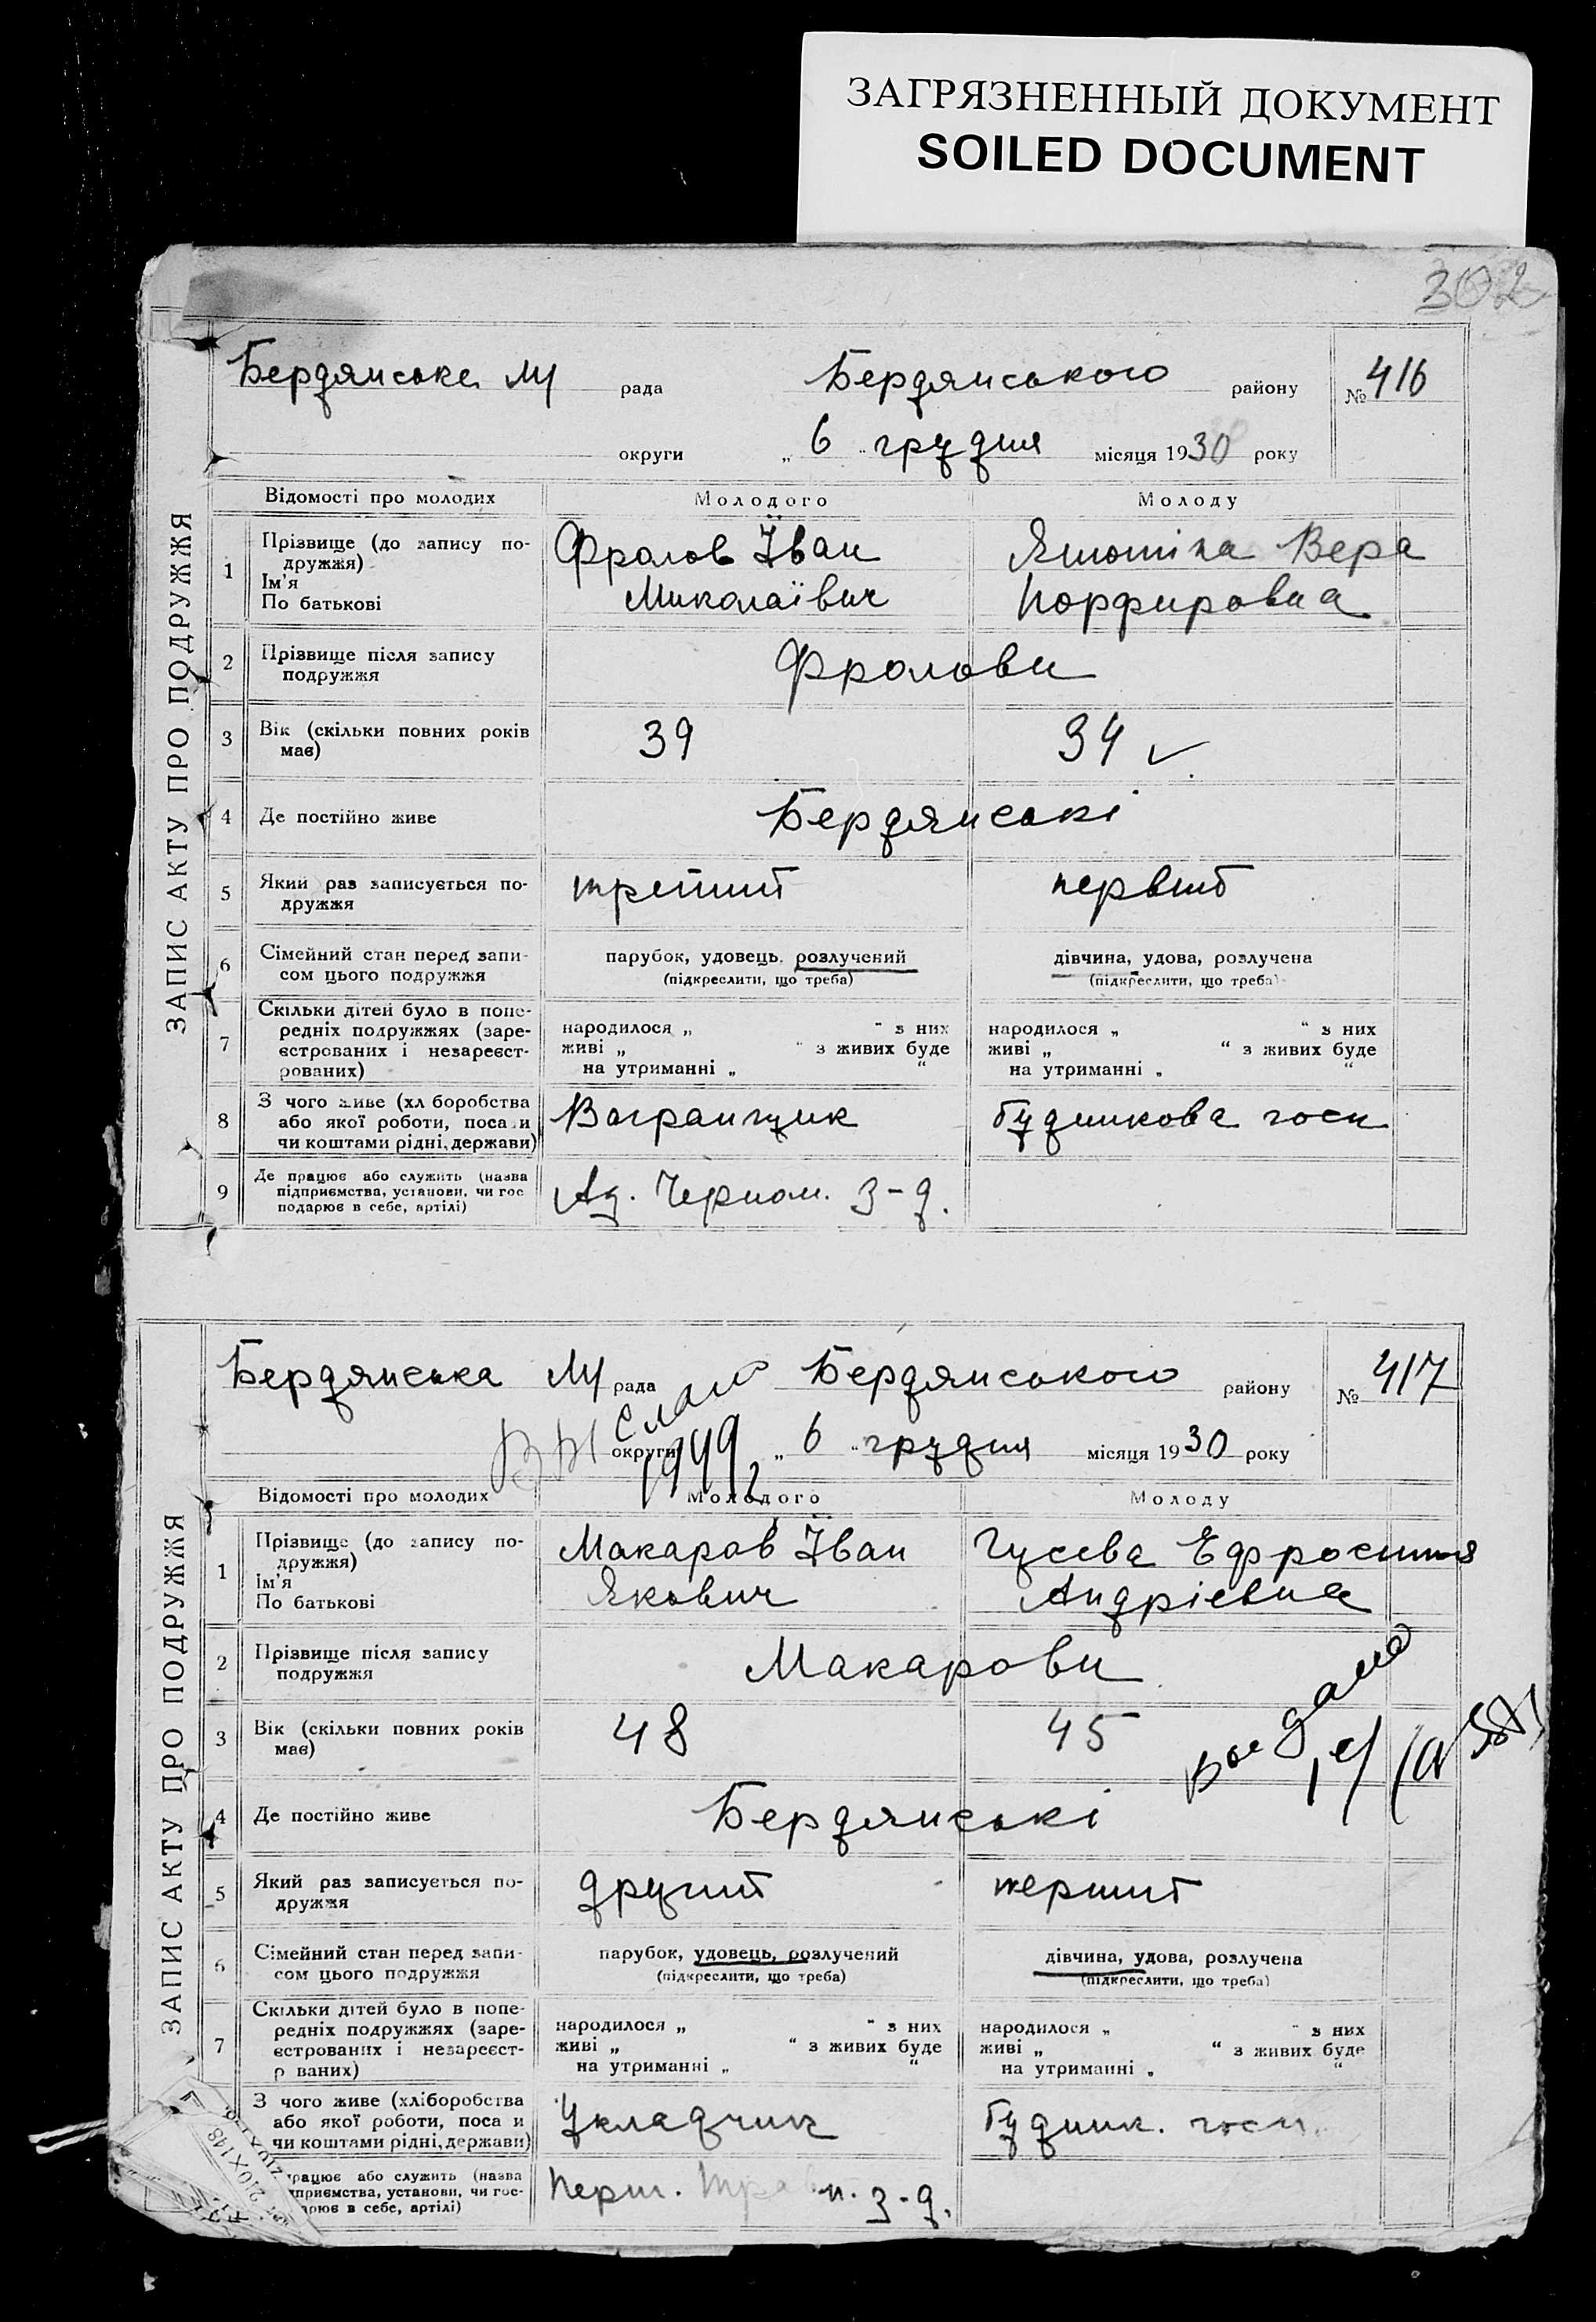 ЗАГРЯЗНЕННЫЙ ДОКУМЕНТ
SOILED DOCUMENT
302
ЗАПИС АКТУ ПРО ПОДРУЖЖЯ
Бердянське М рада Бердянського району № 416
округи „ 6 “ грудня місяця 1930 року
Відомості про молодих Молодого Молоду
1 Прізвище (до запису по-
дружжя)
Ім'я
По батькові
Фролов Їван
Миколаївич
Вера
Порфировна
2 Прізвище після запису
подружжя
Фролови
3 Вік (скільки повних років
має)
39 34 ✓
4 Де постійно живе Бердянські
5 Який раз записується по-
дружжя
третий первий
6 Сімейний стан перед запи-
сом цього подружжя
парубок, удовець, розлучений
(підкреслити, що треба)
дівчина, удова, розлучена
(підкреслити, що треба)
7 Скільки дітей було в попе-
редніх подружжях (заре-
єстрованих і незареєст-
рованих)
народилося „ “ з них
живі „ “ з живих буде
на утриманні „ “
народилося „ “ з них
живі „ “ з живих буде
на утриманні „ “
8 З чого живе (хл боробства
або якої роботи, поса и
чи коштами рідні, держави)
Вагранщик будинкова госп
9 Де працює або служить (назва
підприємства, установи, чи гос
подарює в себе, артілі)
Аз. Черном. з-д.
ЗАПИС АКТУ ПРО ПОДРУЖЖЯ
Бердянська М рада Бердянського району № 417
округи „ 6 “ грудня місяця 1930 року
1949
Відомості про молодих Молодого Молоду
1 Прізвище (до запису по-
дружжя)
Ім'я
По батькові
Макаров Їван
Якович
Гусєва Ефросиния
Андріевна
2 Прізвище після запису
подружжя
Макарови
3 Вік (скільки повних років
має)
48 45
4 Де постійно живе Бердянські
5 Який раз записується по-
дружжя
другий перший
6 Сімейний стан перед запи-
сом цього подружжя
парубок, удовець, розлучений
(підкреслити, що треба)
дівчина, удова, розлучена
(підкреслити, що треба)
7 Скільки дітей було в попе-
редніх подружжях (заре-
єстрованих і незареєст-
р ваних)
народилося „ “ з них
живі „ “ з живих буде
на утриманні „ “
народилося „ “ з них
живі „ “ з живих буде
на утриманні „ “
З чого живе (хліборобства
або якої роботи, поса и
чи коштами рідні, держави)
Укладчик будинк. госп.
рацює або служить (назва
дприємства, установи, чи гос-
дарює в себе, артілі)
Перш. Травн. з-д.